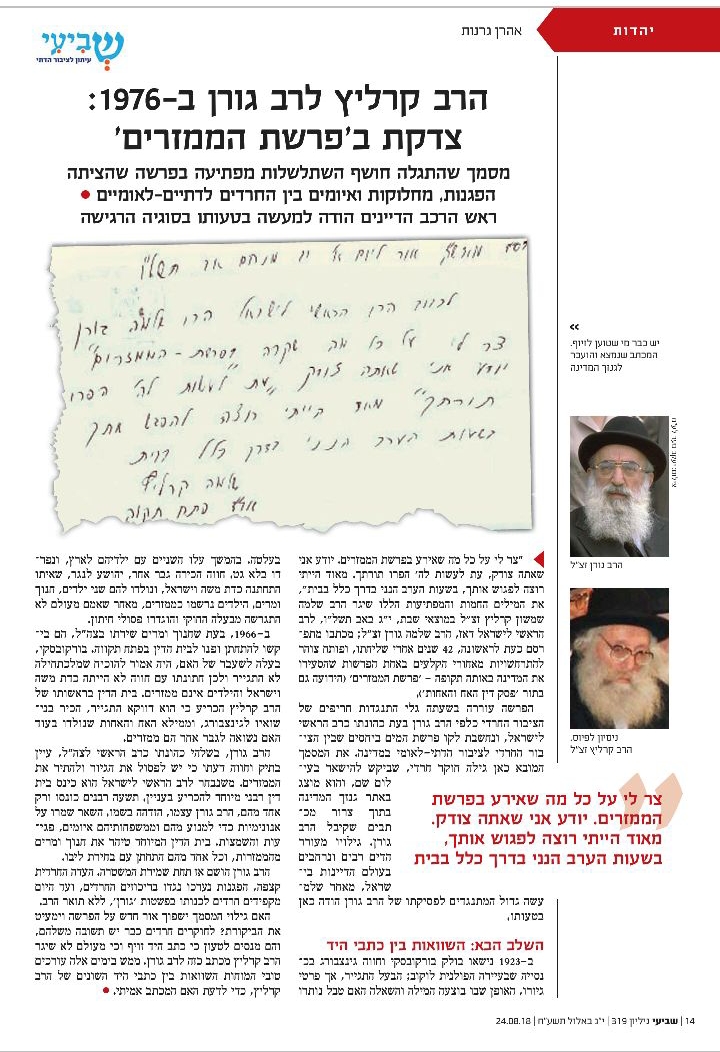 יהדות
אהרן גרנות
שביעי
עיתון לציבור הדתי
הרב קרליץ לרב גורן ב–1976:
צדקת ב'פרשת הממזרים'
מסמך שהתגלה חושף השתלשלות מפתיעה בפרשה שהציתה
הפגנות, מחלוקות ואיומים בין החרדים לדתיים–לאומיים •
ראש הרכב הדיינים הודה למעשה בטעותו בסוגיה הרגישה
בסד מוצש"ק אור ליום א' יג מנחם אב תשל"ו
לכבוד הרב הראשי לישראל הרב שלמה גורן
צר לי על כל מה שקרה בפרשת - הממזרים
יודע אני שאתה צודק "עת לעשות לה' הפרו
תורתך" מאוד הייתי רוצה להפגש אתך
בשעות הערב הנני בדרך כלל בבית
שלמה קרליץ
פתח תקוה
יש כבר מי שטוען לזיוף.
המכתב שנמצא והועבר
לגנזך המדינה
הרב גורן זצ"ל
ניסיון לפיוס.
הרב קרליץ זצ"ל
"צר לי על כל מה שאירע בפרשת הממזרים. יודע אני
שאתה צודק, עת לעשות לה' הפרו תורתך. מאוד הייתי
רוצה לפגוש אותך, בשעות הערב הנני בדרך כלל בבית",
את המילים החמות והמפתיעות הללו שיגר הרב שלמה
שמשון קרליץ זצ"ל במוצאי שבת, י"ג באב תשל"ו, לרב
הראשי לישראל דאז, הרב שלמה גורן זצ"ל; מכתבו מתפ־
רסם כעת לראשונה, 42 שנים אחרי שליחתו, ופותח צוהר
להתרחשויות מאחורי הקלעים באחת הפרשות שהסעירו
את המדינה באותה תקופה – 'פרשת הממזרים' (הידועה גם
בתור 'פסק דין האח והאחות').
הפרשה עוררה בשעתה גלי התנגדות חריפים של
הציבור החרדי כלפי הרב גורן בעת כהונתו כרב הראשי
לישראל, ונחשבת לקו פרשת המים ביחסים שבין הצי־
בור החרדי לציבור הדתי–לאומי במדינה. את המסמך
המובא כאן גילה חוקר חרדי, שביקש להישאר בעי־
לום שם, והוא מוצג
באתר גנזך המדינה
בתוך צרור מכ־
תבים שקיבל הרב
גורן. גילויו מעורר
הדים רבים ונרחבים
בעולם הדיינות בי־
שראל, מאחר שלמ־
עשה גדול המתנגדים לפסיקתו של הרב גורן הודה כאן
בטעותו.
צר לי על כל מה שאירע בפרשת
הממזרים. יודע אני שאתה צודק.
מאוד הייתי רוצה לפגוש אותך,
בשעות הערב הנני בדרך כלל בבית
השלב הבא: השוואות בין כתבי היד
ב–1923 נישאו בולק בורקובסקי וחווה גינצבורג בכ־
נסייה שבעיירה הפולנית לוקוב; הבעל התגייר, אך פרטי
גיורו, האופן שבו בוצעה המילה והשאלה האם טבל נותרו
בעלטה. בהמשך עלו השניים עם ילדיהם לארץ, ונפר־
דו בלא גט. חווה הכירה גבר אחר, יהושע לנגר, שאיתו
התחתנה כדת משה וישראל, ונולדו להם שני ילדים, חנוך
ומרים. הילדים נרשמו כממזרים, מאחר שאמם מעולם לא
התגרשה מבעלה החוקי והוגדרו פסולי חיתון.
ב–1966, בעת שחנוך ומרים שירתו בצה"ל, הם בי־
קשו להתחתן ופנו לבית הדין בפתח תקווה. בורקובסקי,
בעלה לשעבר של האם, היה אמור להוכיח שמלכתחילה
לא התגייר ולכן חתונתו עם חווה לא הייתה כדת משה
וישראל והילדים אינם ממזרים. בית הדין בראשותו של
הרב קרליץ הכריע כי הוא דווקא התגייר, הכיר בני־
שואיו לגינצבורג, וממילא האח והאחות שנולדו בעוד
האם נשואה לגבר אחר הם ממזרים.
הרב גורן, בשלהי כהונתו כרב הראשי לצה"ל, עיין
בתיק וחווה דעתו כי יש לפסול את הגיור ולהתיר את
הממזרים. משנבחר לרב הראשי לישראל הוא כינס בית
דין רבני מיוחד להכריע בעניין. תשעה רבנים כונסו ורק
אחד מהם, הרב גורן עצמו, הזדהה בשמו, השאר שמרו על
אנונימיות כדי למנוע מהם וממשפחותיהם איומים, פגי־
עות והשמצות. בית הדין המיוחד טיהר את חנוך ומרים
מהממזרות, וכל אחד מהם התחתן עם בחירת ליבו.
הרב גורן הושם אז תחת שמירת המשטרה. העדה החרדית
קצפה, הפגנות נערכו נגדו בריכוזים החרדים, ועד היום
מקפידים חרדים לכנותו בפשטות 'גורן', ללא תואר הרב.
האם גילוי המסמך ישפוך אור חדש על הפרשה וימעיט
את הביקורת? לחוקרים חרדים כבר יש תשובה משלהם,
והם מנסים לטעון כי כתב היד זויף וכי מעולם לא שיגר
הרב קרליץ מכתב כזה לרב גורן. ממש בימים אלה עורכים
טובי המוחות השוואות בין כתבי היד השונים של הרב
קרליץ, כדי לדעת האם המכתב אמיתי. •
14 | שביעי גיליון 319 | י"ג באלול תשע"ח | 24.08.18